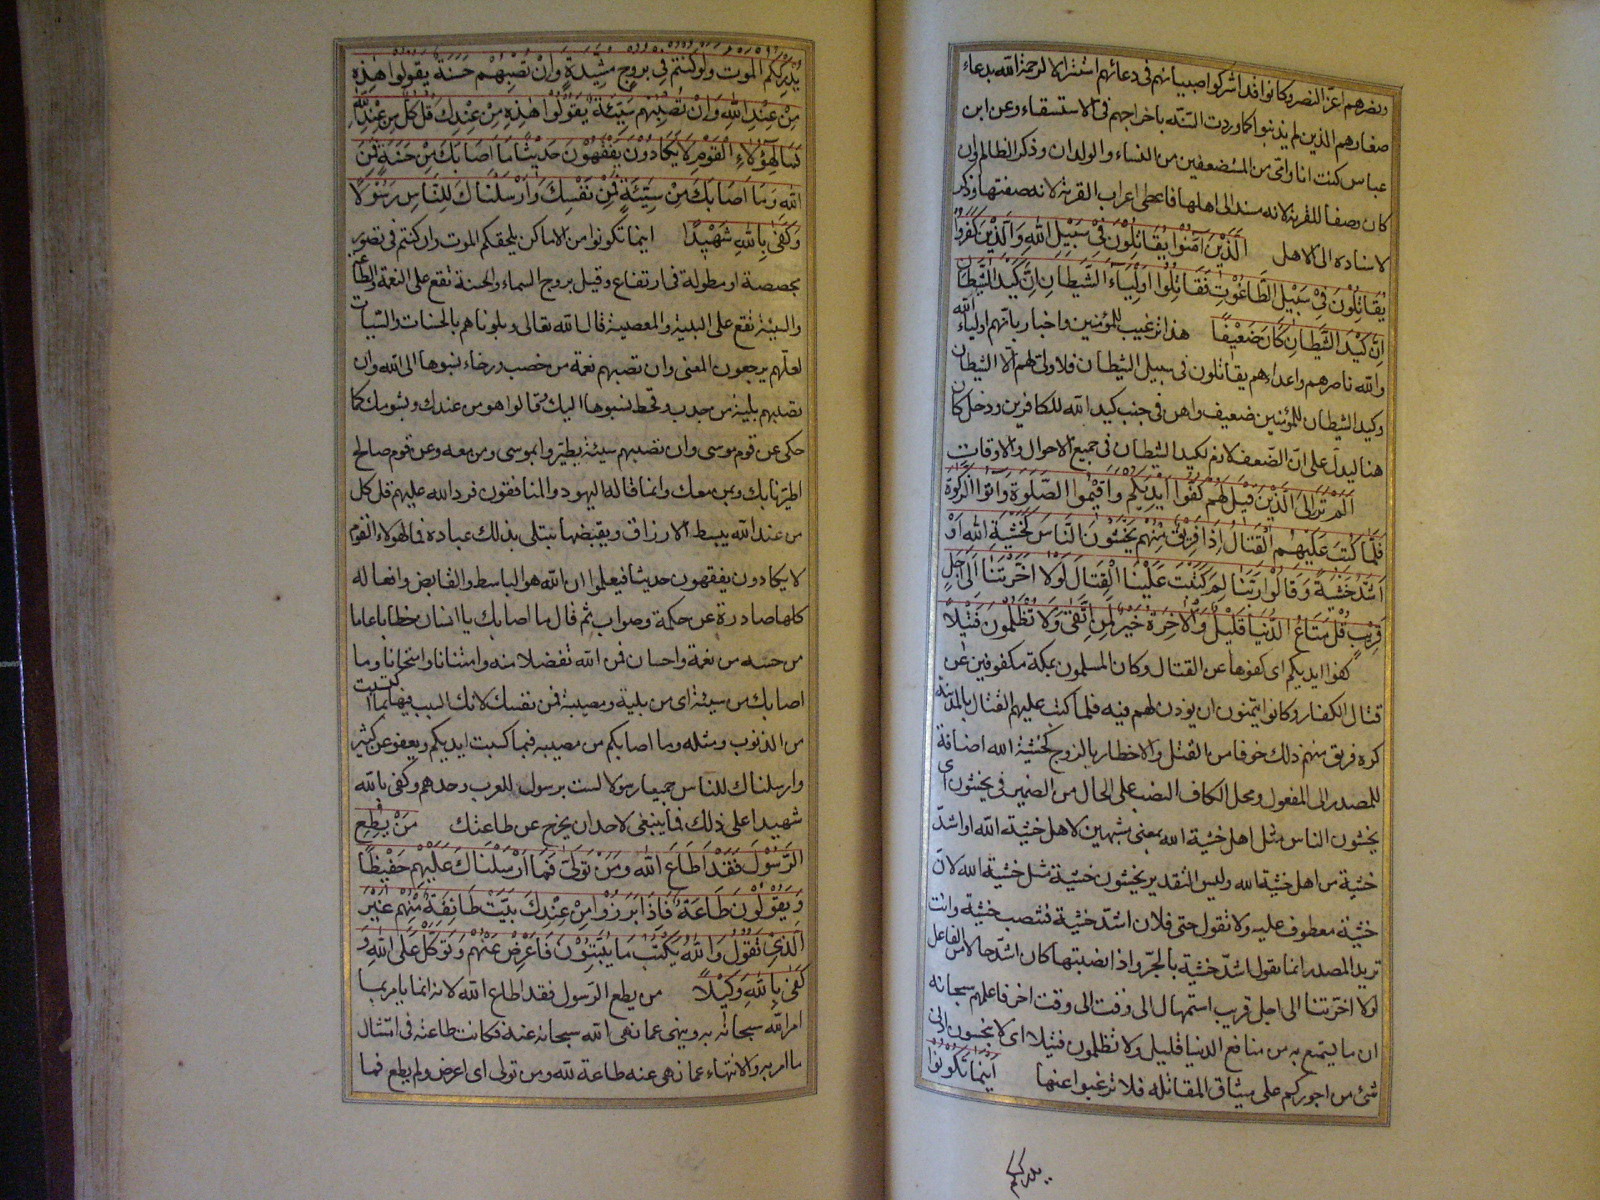 ونصرهم اعز النصر وكانوا قد اشركوا صبيانهم فى دعائهم استنزالا لرحمة الله بدعاء
صغارهم الذين لم يذنبوا كما وردت السنه باخراجهم فى الاستسقاء وعن ابن
عباس كنت انا وامى من المستضعفين من النساء والولدان وذكر الظالم وان
كان وصفا للقرية لانه مسند الى اهلها فاعطى اعراب القرية لانه صفتها وذكر
لاسناده الى الاهل الَّذِيْنَ آمَنُوا يُقَاتِلُوْنَ فِيْ سَبِيْلِ اللهِ وَالَّذِيْنَ كَفَرُوا
يُقَاتِلُوْنَ فِيْ سَبِيْلِ الطَّاغُوْتِ فَقَاتِلُوا اَوْلِيَاءَ الشَّيطَانِ اِنَّ كَيْدَ الشَّيْطَانِ
اِنَّ كَيْدَ الشَّيْطَانِ كَانَ ضَعِيْفًا هذا ترغيب للمؤمنين واخبار بانهم اولياء الله
والله ناصرهم واعداءهم يقاتلون فى سبيل الشيطان فلا ولى لهم الا الشيطان
وكيد الشيطان للمؤمنين ضعيف واهن فى جنب كيد الله للكافرين ودخل كان
هنا ليدل على ان الضعف لازم لكيد الشيطان فى جميع الاحوال والاوقات
اَلَمْ تَرَ اِلَى الَّذِيْنَ قِيْلَ لَهُمْ كُفُّوا اَيْدِيَكُمْ وَاَقِيْمُوا الصَّلوةَ وَاٰتُوا الزَّكوةَ
فَلَمَّا كُتِبَ عَلَيْهِمُ الْقِتَالُ اِذَا فَرِيْقٌ مِنْهُمْ يَخْشَوْنَ النَّاسَ كَخَشْيَةِ اللهِ اَوْ
اَشَدَّ خَشْيَةً وَقَالُوْا رَبَّنَا لِمَ كَتَبْتَ عَلَيْنَا الْقِتَالَ لَوْلَا اَخَّرْتَنَا اِلٰى اَجَلٍ
قَرِيْبٍ قُلْ مَتَاعُ الدُّنْيَا قَلِيْلٌ وَالْاٰخِرَةُ خَيْرٌ لِمَنِ اتَّقٰى وَلَا تُظْلَمُوْنَ فَتِيْلًا
كفوا ايديكم اى كفوها عن القتال وكان المسلمون بمكة مكفوفين عن
قتال الكفار وكانوا يتمنون ان يوذن لهم فيه فلما كتب عليهم القتال بالمدينة
كره فريق منهم ذلك خوفا من القتل والاخطار بالروح كخشية الله اضافة
للمصدر الى المفعول ومحل الكاف النصب على الحال من الضمير فى يخشون اى
يخشون الناس مثل اهل خشية الله بمعنى مشبهين لاهل خشية الله او اشد
خشية من اهل خشية الله وليس التقدير يخشون خشية مثل خشية الله لان
خشية معطوف عليه ولا تقول خشى فلان اشد خشية فتنصب خشية وانت
تريد المصدر انما تقول اشد خشية بالجر واذا نصبتها كان اشد حالا من الفاعل
لولا اخرتنا الى اجل قريب استمهال الى وقت الى وقت اخر فاعلمهم سبحانه
ان ما يتمتع به من منافع الدنيا قليل ولا تظلمون فتيلا اى لا تبخسون ادنى
شئ من اجوركم على مشاق المقاتله فلا ترغبوا عنها اَيْنَمَا تَكُوْنُوْا
يدرككم
يُدْرِكْكُمُ الْمَوْتُ وَلَوْ كُنْتُمْ فِيْ بُرُوْجٍ مُشَيَّدَةٍ وَاِنْ تُصِبْهُمْ حَسَنَةٌ يَقُوْلُوا هٰذِهِ
مِنْ عِنْدِ اللهِ وَاِنْ تُصِبْهُمْ سَيِّئَةٌ يَقُوْلُوْا هٰذِهِ مِنْ عِنْدِكَ قُلْ كُلٌّ مِنْ عِنْدِ اللهِ
فَمَا لِهٰؤُلَاءِ الْقَوْمِ لَا يَكَادُوْنَ يَفْقَهُوْنَ حَدِيْثًا مَا اَصَابَكَ مِنْ حَسَنَةٍ فَمِنَ
اللهِ وَمَا اَصَابَكَ مِنْ سَيِّئَةٍ فَمِنْ نَفْسِكَ وَاَرْسَلْنَاكَ لِلنَّاسِ رَسُوْلًا
وَكَفٰى بِاللهِ شَهِيْدًا اينما تكونوا من الاماكن يلحقكم الموت وان كنتم فى قصور
مجصصة او مطولة فى ارتفاع وقيل بروج السماء والحسنة تقع على النعمة والطاعة
والسيئة تقع على البلية والمعصية قال الله تعالى وبلوناهم بالحسنات والسيئات
لعلهم يرجعون المعنى وان تصبهم نعمة من خصب ورخاء نسبوها الى الله وان
تصبهم بلية من جدب وقحط نسبوها اليك وقالوا هو من عندك وبشومك كما
حكى عن قوم موسى وان تصبهم سيئة يطيروا بموسى ومن معه وعن قوم صالح
اطيرنا بك وبمن معك وانما قاله اليهود والمنافقون فرد الله عليهم قل كل
من عند الله يبسط الارزاق ويقبضها يبتلى بذلك عباده فما لهولاء القوم
لا يكادون يفقهون حديثا فيعلموا ان الله هو الباسط والقابض وافعاله
كلها صادرة عن حكمة وصواب ثم قال ما اصابك يا انسان خطابا عاما
من حسنه من نعمة واحسان فمن الله تفضلا منه وامتنانا وامتحانا وما
اصابك من سيئة اى من بلية ومصيبة فمن نفسك لانك السبب فيها بما اكتسبت
من الذنوب ومثله وما اصابكم من مصيبه فبما كسبت ايديكم ويعفو عن كثير
وارسلناك للناس جميعا رسولا لست برسول للعرب وحدهم وكفى بالله
شهيدا على ذلك فما ينبغى لاحد ان يخرج عن طاعتك مَنْ يُطِعِ
الرَّسُوْلَ فَقَدْ اَطَاعَ اللهَ وَمَنْ تَوَلّٰى فَمَا اَرْسَلْنَاكَ عَلَيْهِمْ حَفِيْظًا
وَيَقُوْلُوْنَ طَاعَةٌ فَاِذَا بَرَزُوْا مِنْ عِنْدِكَ بَيَّتَ طَائِفَةٌ مِنْهُمْ غَيْرَ
الَّذِيْ تَقُوْلُ وَاللهُ يَكْتُبُ مَا يُبَيِّتُوْنَ فَاَعْرِضْ عَنْهُمْ وَتَوَكَّلْ عَلَى اللهِ وَ
كَفٰى بِاللهِ وَكِيْلًا من يطع الرسول فقد اطاع الله لانه انما يامر بما
امر الله سبحانه به وينهى عما نهى الله سبحانه عنه فكانت طاعته فى امتثال
ما امر به والانتهاء عما نهى عنه طاعة لله ومن تولى اى اعرض ولم يطع فما